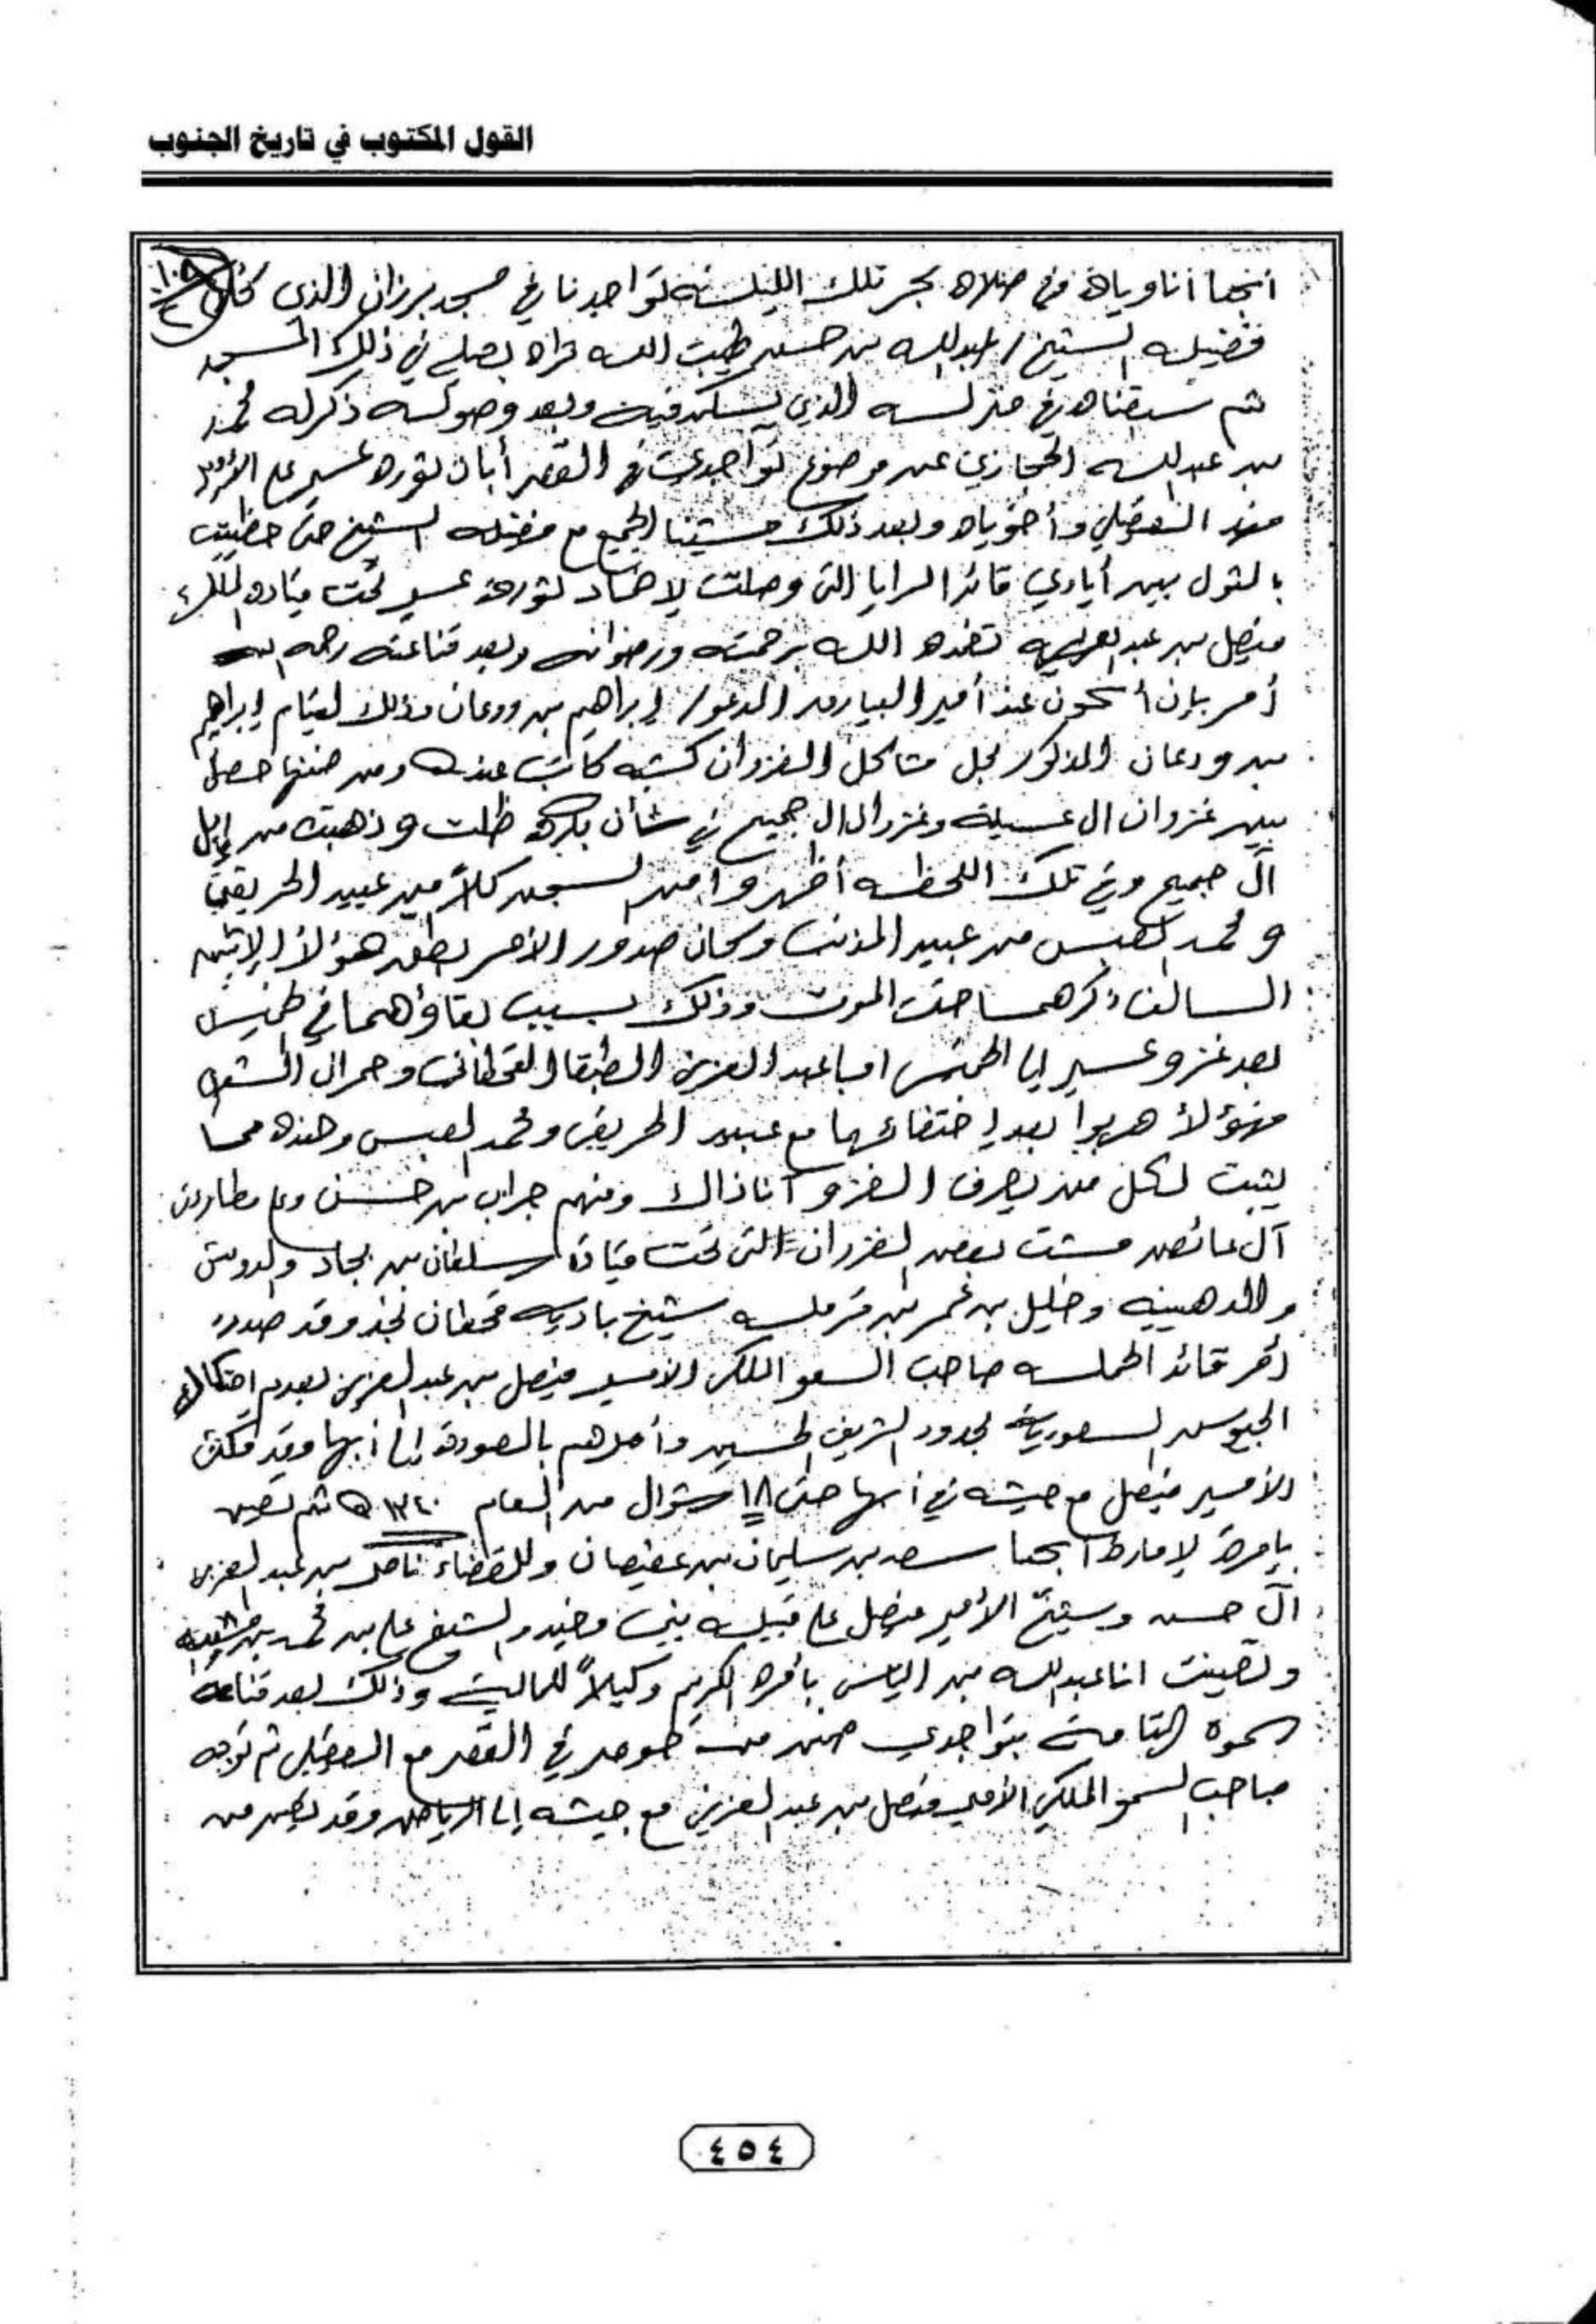 القول المكتوب في تاريخ الجنوب
أنا وياه في صلاة فجر تلك الليلة تواجدنا في مسجد برزان الذي كان
فضيلة الشيخ / عبدالله بن حسن طيب الله ثراه يصلي في ذلك المسجد
ثم سبقناه في منزله الذي يسكن فيه وبعد وصوله ذكر له محمد
بن عبدالله الحجازي عن موضوع تواجدي في القصر أبان ثورة عسير على
فهد العقيلي وأخوياه وبعد ذلك مشينا الجميع مع فضيلة الشيخ حتى حظيت
بالمثول بين أيادي قائد السرايا التي وصلت لإخماد ثورة عسير تحت قيادة الملك
فيصل بن عبدالعزيز تغمده الله برحمته ورضوانه وبعد قناعته رحمه الله
أمر بإن أكون عند أمير البيارق المدعو / إبراهيم بن ودعان وذلك لقيام إبراهيم
بن ودعان المذكور لحل مشاكل الغزوان كشبه كاتب عنده ومن ضمنها حصل
بين غزوان ال عسيلة وغزوان ال جميح في شأن بكرة ظلت وذهبت من إبل
آل جميح وفي تلك اللحظه أظهروا من السجن كلاً من عبيد الحريقي
و محمد من عبيد وكان صدور الأمر هؤلأ الإثنين
السالف ذكرهما حتى الموت وذلك بسبب بقاؤهما في خميس
بعد غزو عسير إلى الخميس اما عبد العزيز القحطاني وحمران
فهؤلأ هربوا بعد إختفائهما مع عبيد الحريقي ومحمد وهذه مما
يثبت لكل من يعرف الغزو آناذاك ومنهم جراب بن خشن وعلى مطاردين
آل عائض مشت بعض الغزوان التي تحت قيادة سلطان بن بجاد والدويش
والدهينه وخليل بن عمر بن قرمله شيخ باديه قحطان نجد وقد صدر
أمر قائد الحمله صاحب السمو الملكي الأمير فيصل بن عبدالعزيز بعدم إحتكاك
الجيوش السعوديه بحدود الشريف الحسين وأمرهم بالعودة إلى أبها وقد مكث
الأمير فيصل مع جيشه في أبها حتى ١٨ شوال من العام ١٣٤٠ ه ثم تعين
بإمرة لإمارة أبها سعد بن سليمان بن عفيصان وللقضاء ناصر بن عبد العزيز
آل حسن وشيخ الأمير فيصل على قبيله الشيخ علي بن محمد بن مشيبه
وتعينت انا عبدالله بن الياس بأمره الكريم وكيلاً للمالية وذلك بعد قناعة
سموه التامة بتواجدي ضمن من في القصر مع العقيلي ثم توجه
صاحب السمو الملكي الأمير فيصل بن عبد العزيز مع جيشه إلى الرياض وقد تعين من
٤٥٤